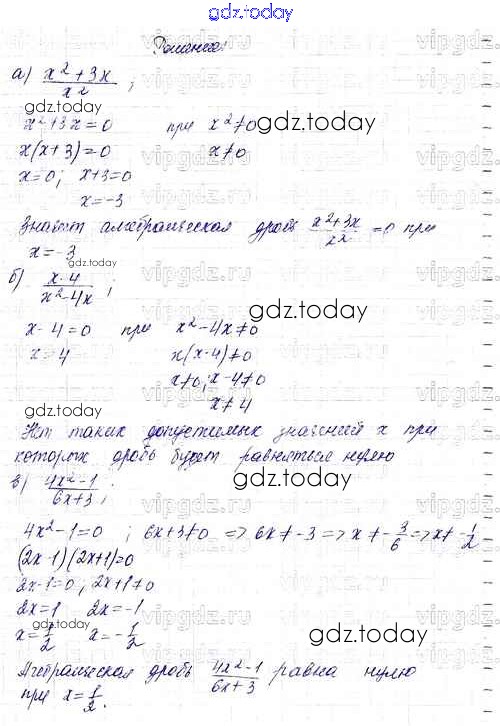 gdz.today
Решение:
а) (x² + 3x)/x² ;
gdz.today
x² + 3x = 0 при x² ≠ 0 gdz.today
x(x+3) = 0 x ≠ 0
x = 0; x + 3 = 0
x = -3
Значит алгебраическая дробь (x² + 3x)/x² = 0 при
x = -3
gdz.today
б) (x - 4)/(x² - 4x) ;
gdz.today
x - 4 = 0 при x² - 4x ≠ 0
x = 4 x(x-4) ≠ 0
x ≠ 0; x - 4 ≠ 0
x ≠ 4
gdz.today
Нет таких допустимых значений x при
которых дробь будет равняться нулю
в) (4x² - 1)/(6x + 3) ;
gdz.today
gdz.today
4x² - 1 = 0 ; 6x + 3 ≠ 0 => 6x ≠ -3 => x ≠ -3/6 => x ≠ -1/2
(2x-1)(2x+1)=0
2x-1=0; 2x+1≠0
2x=1 2x=-1
x = 1/2 x = -1/2
gdz.today
Алгебраическая дробь (4x² - 1)/(6x + 3) равна нулю
при x = 1/2.
gdz.today
vipgdz.ru